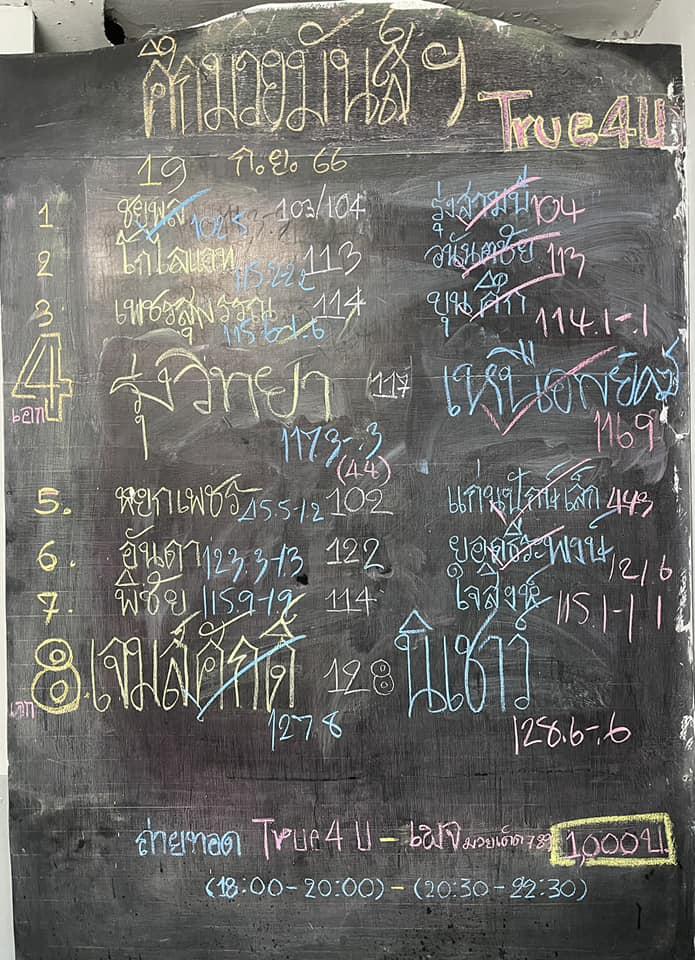 ศึกมวยมันส์ ฯ
True4U
19 ก.ย. 66
1 ชัยพล 102.5 103/104 รุ่งสามมี 104
2 โกไลแอท 115.2-2.2 113 อนันตชัย 113
3. เพชรสุพรรณ 115.6-1.6 114 ขุนศึก 114.1-.1
4 เอก รุ่งวิทยา 117 เหนือ
117.3-.3 116.9
(44)
5. หยกเพชร 45.5-1.2 102 แก่นปักษ์เล็ก 44.3
6. อันดา 123.3-1.3 122 ยอดธีระพงษ์ 121.6
7. พิชัย 115.9-1.9 114 ใจสิงห์ 115.1-1.1
8 เอก เจมส์ศักดิ์ 128 นิชาว์
127.8 128.6-.6
ถ่ายทอด True4U - เฟจ มวยเด็ด789 1,000บ.
(18:00-20:00) - (20:30-22:30)